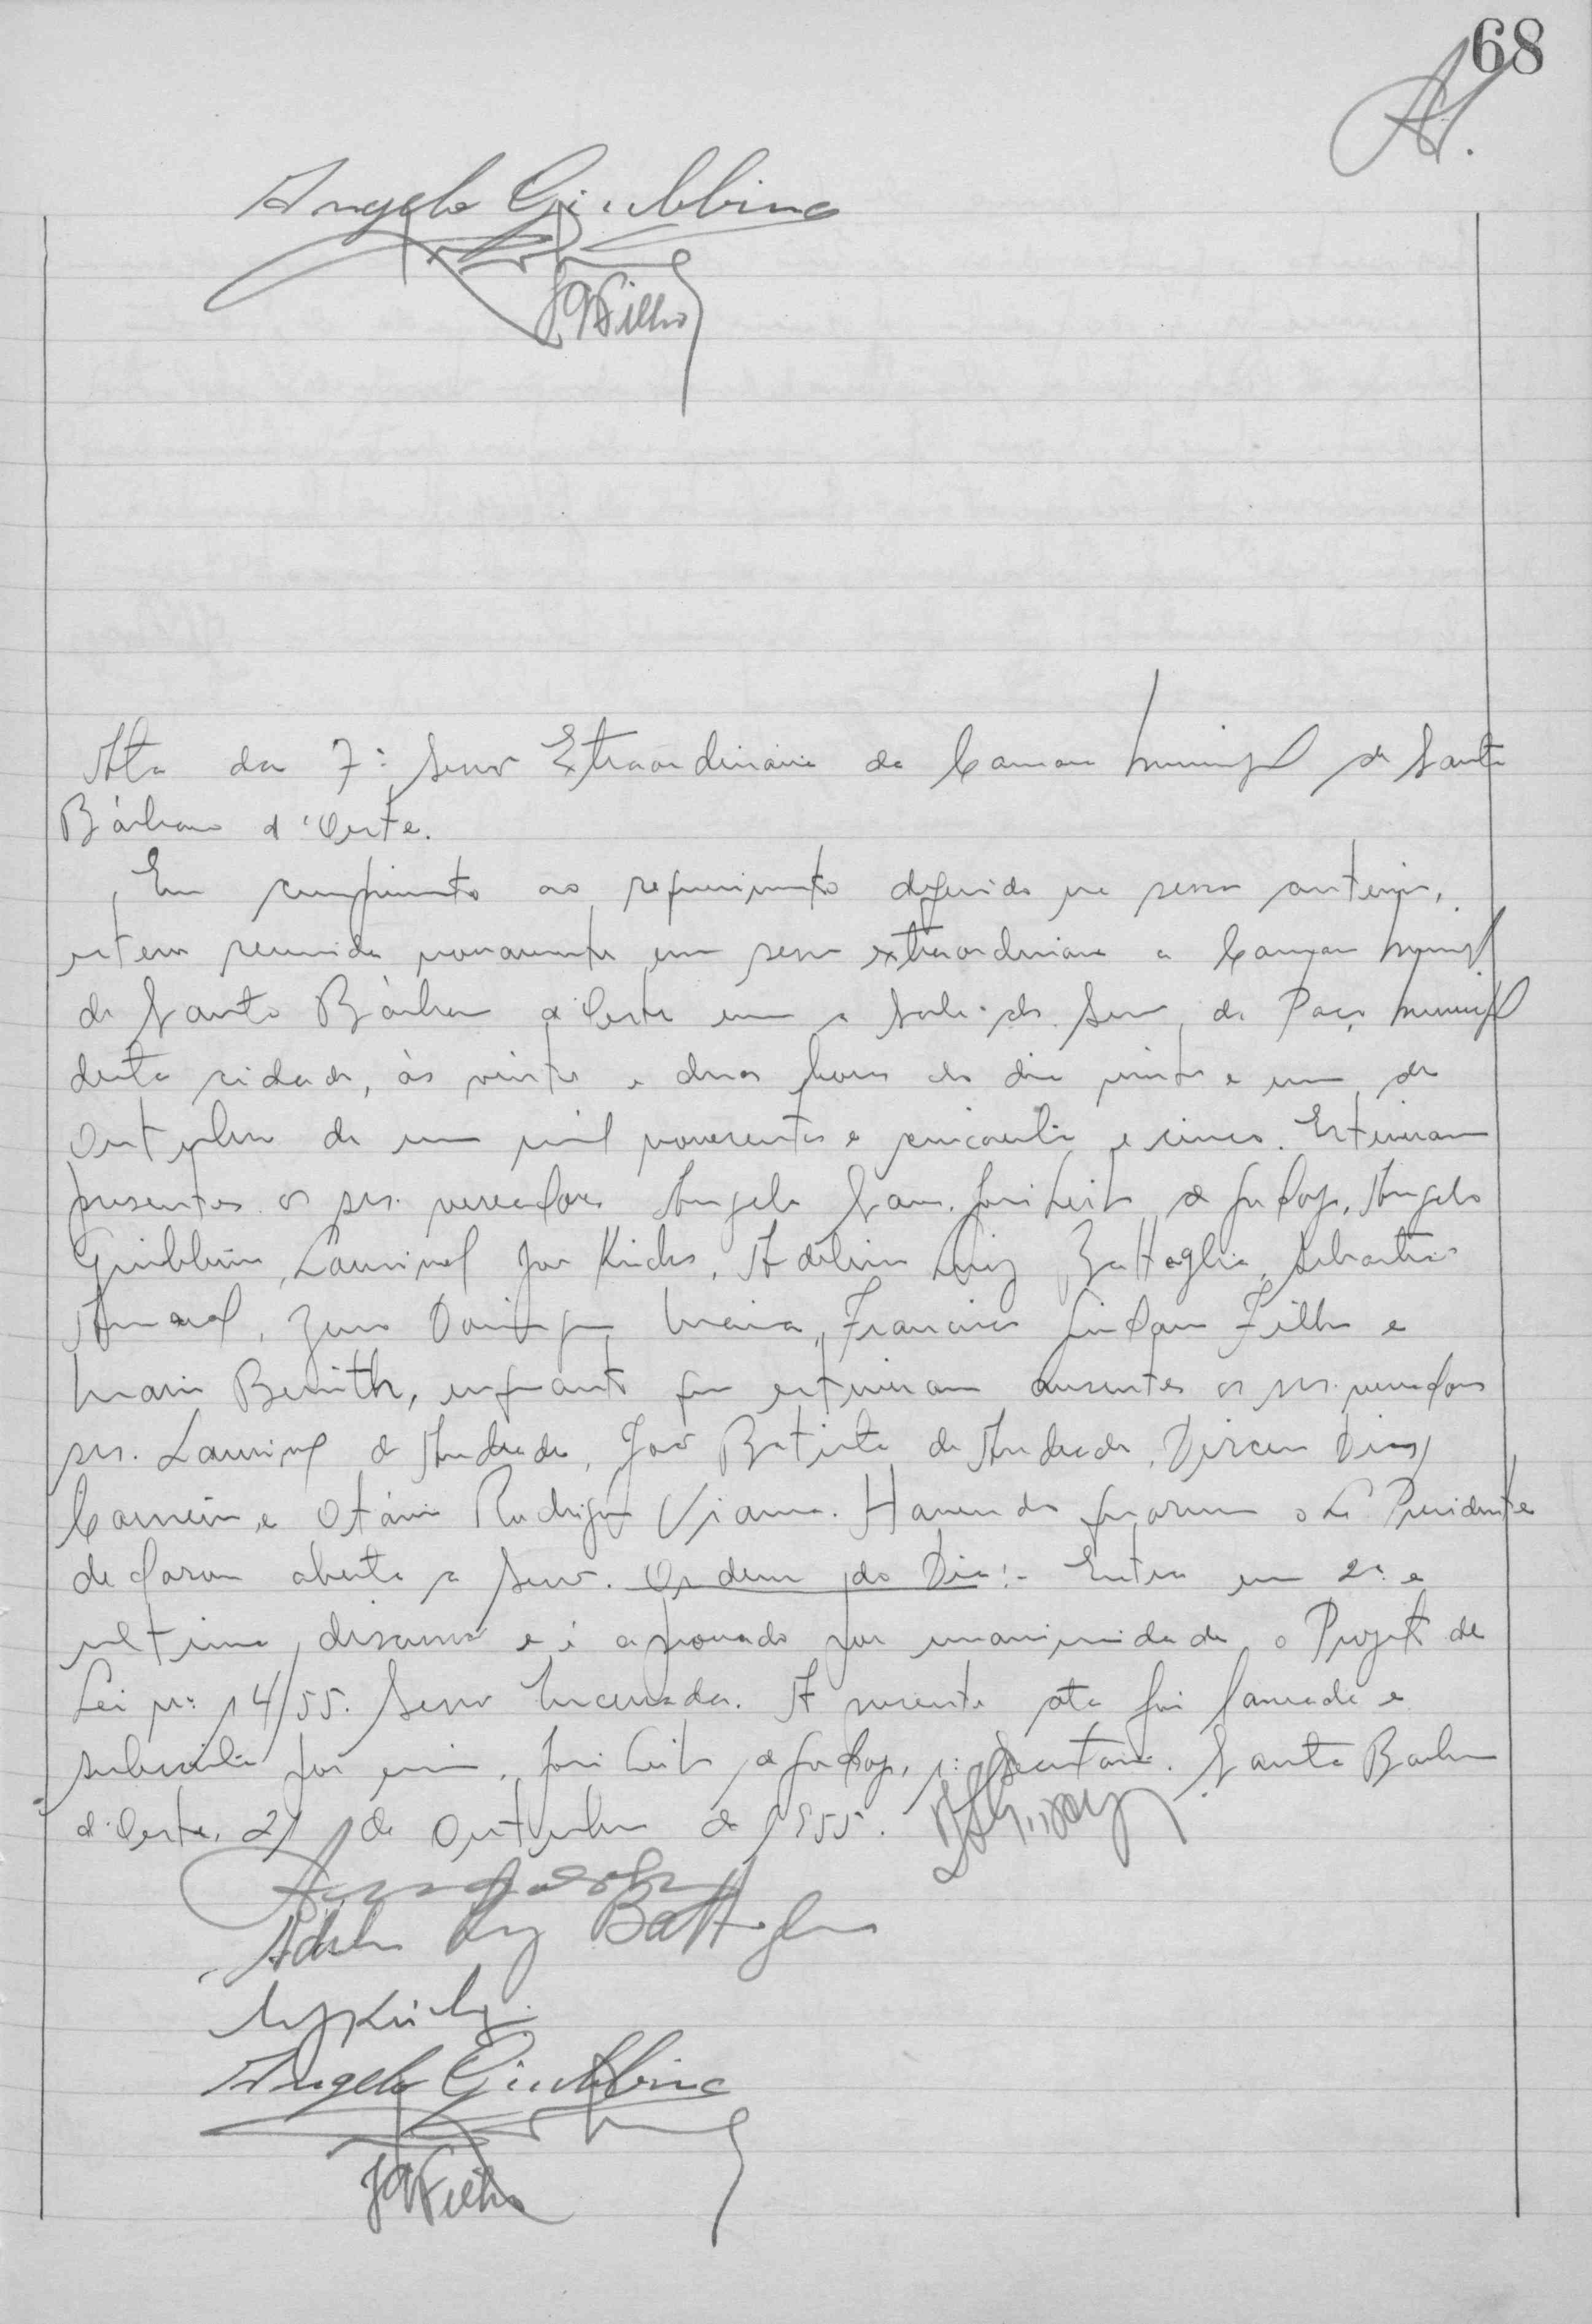 68
Angelo Giubbina
JGFilho
Ata da 7ª Sessão Extraordinaria da Camara Municipal de Santa
Bárbara d'Oeste.
Em cumprimento ao requerimento deferido na sessão anterior,
esteve reunida novamente em sessão extraordinaria a Camara Municipal
de Santa Bárbara d'Oeste em a Sala das Sessões do Paço Municipal
desta cidade, às vinte e duas horas do dia vinte e um de
Outubro de um mil novecentos e cincoenta e cinco. Estiveram
presentes os srs. vereadores Angelo Sans, José Leite de Godoy, Angelo
Giubbina, Lourival José Kirche, Adelino Luiz Battaglia, Sebastião
Amaral, Domingues Maia, Francisco Filho e
Mario Benith, enquanto que estiveram ausentes os srs. vereadores
srs. Lourival de Andrade, João Batista de Andrade, Dirceu Dias
Carneiro e Otávio Rodrigues Viana. Havendo quorum o Sr. Presidente
declarou aberta a Sessão. Ordem do Dia:- Entra em 2ª e
ultima discussão e é aprovado por unanimidade o Projeto de
Lei nº 14/55. Sessão Encerrada. A presente ata foi lavrada e
subscrita por mim, José Leite de Godoy, 1º Secretario. Santa Barbara
d'Oeste, 21 de Outubro de 1955.
Adelino Luiz Battaglia
LJKirche
Angelo Giubbina
JGFilho